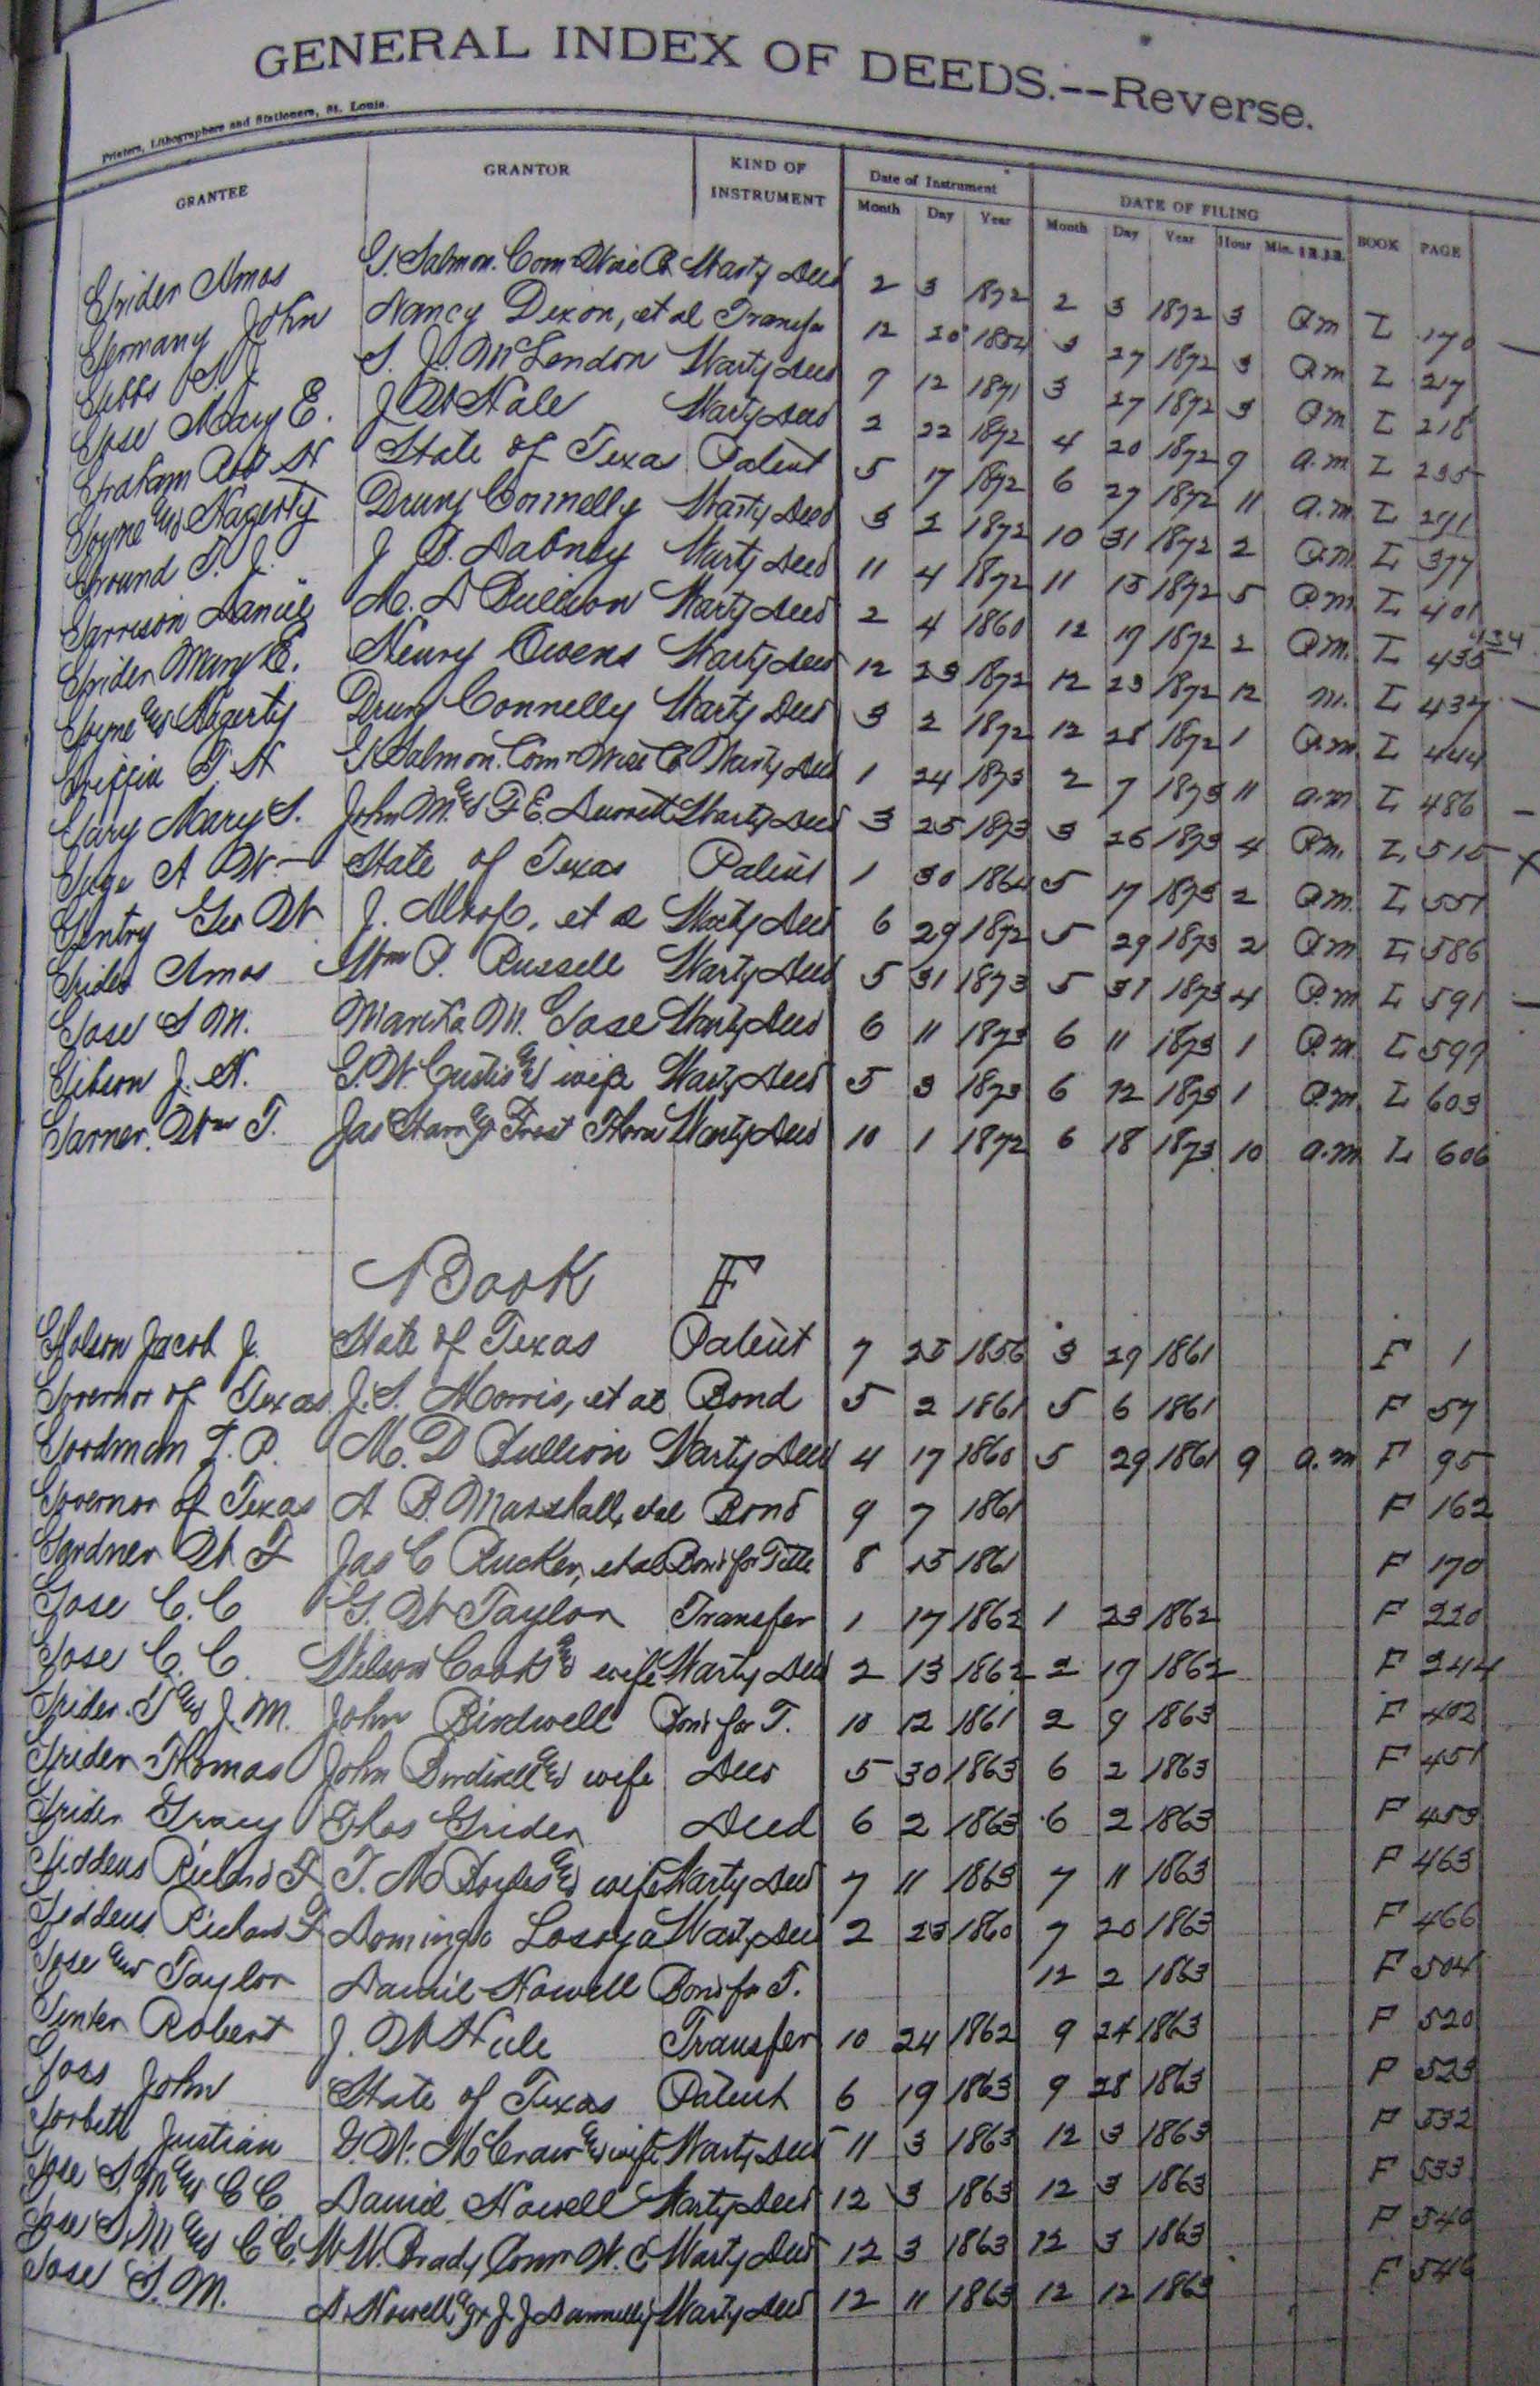 GENERAL INDEX OF DEEDS.--Reverse.
Printers, Lithographers and Stationers, St. Louis.
GRANTEE GRANTOR KIND OF INSTRUMENT Date of Instrument DATE OF FILING BOOK PAGE
Month Day Year Month Day Year Hour Min.
Grider Amos G. Salmon. Comr Wise Co Warty Deed 2 3 1872 2 3 1872 3 P.m L 170
Germany John Nancy Dixon, et al Transfer 12 20 1854 3 27 1872 3 P.m L 217
Gibbs S. J. S. J. McLendon Warty Deed 7 12 1871 3 27 1872 3 P.m L 218
Gose Mary E. J W Hale Warty Deed 2 22 1872 4 20 1872 9 a.m L 235
Graham Robt H State of Texas Patent 5 17 1872 6 27 1872 11 a.m L 291
Goyne and Hagerty Drury Connelly Warty Deed 3 2 1872 10 31 1872 2 P.m L 377
Ground T. J. J. B. Dabney Warty Deed 11 4 1872 11 15 1872 5 P.m L 401
Garrison Daniel M. D Bullion Warty Deed 2 4 1860 12 17 1872 2 P.m. L 435 434
Grider Mary E. Henry Owens Warty Deed 12 23 1872 12 23 1872 12 m. L 437
Goyne and Hagerty Drury Connelly Warty Deed 3 2 1872 12 28 1872 1 P.m L 444
Griffin T. H G Salmon. Comr Wise Co Warty Deed 1 24 1873 2 7 1873 11 a.m L 486
Gary Mary S. John M. and F. E. Durrett Warty Deed 3 25 1873 3 26 1873 4 P.m. L 515 X
Gage A W State of Texas Patent 1 30 1864 5 17 1873 2 P.m. L 551
Gentry Geo W J. , et al Warty Deed 6 29 1872 5 29 1873 2 P.m L 586
Grider Amos Wm P. Russell Warty Deed 5 31 1873 5 31 1873 4 P.m L 591
Gose S M. Maretta M. Gose Warty Deed 6 11 1873 6 11 1873 1 P.m. L 599
Gibson J. N. G. W. Custis and wife Warty Deed 5 3 1873 6 12 1873 1 P.m. L 603
Garner. Wm T. Jas Starr & Frost Thorn Warty Deed 10 1 1872 6 18 1873 10 a.m L 606
Book F
Gholson Jacob J. State of Texas Patent 7 25 1856 3 29 1861 F 1
Governor of Texas J. S. Morris, et al Bond 5 2 1861 5 6 1861 F 57
Goodman T. P. M. D Bullion Warty Deed 4 17 1860 5 29 1861 9 a.m F 95
Governor of Texas A B. Marshall, et al Bond 9 7 1861 F 162
Gardner W F Jas C Rucker, et al Bond for Title 8 15 1861 F 170
Gose C. C G. W Taylor Transfer 1 17 1862 1 23 1862 F 220
Gose C. C. Wilson Cook and wife Warty Deed 2 13 1862 2 19 1862 F 244
Grider. T and J. M. John Birdwell Bond for T. 10 12 1861 2 9 1863 F 402
Grider Thomas John Birdwell and wife Deed 5 30 1863 6 2 1863 F 451
Grider Tracy Thos Grider Deed 6 2 1863 6 2 1863 F 453
Giddens Richard F T. M and wife Warty Deed 7 11 1863 7 11 1863 F 463
Giddens Richard F Domingo Losoya Warty Deed 2 23 1860 7 20 1863 F 466
Gose and Taylor Daniel Howell Bond for T. 12 2 1863 F 504
Ginter Robert J. W Hale Transfer 10 24 1862 9 24 1863 F 520
Goss John State of Texas Patent 6 19 1863 9 28 1863 F 523
Gorbett Justian G. W. McCraw and wife Warty Deed 11 3 1863 12 3 1863 F 532
Gose S. M and C C. Daniel Howell Warty Deed 12 3 1863 12 3 1863 F 533
Gose S. M and C C. W. W. Brady Comr W. C Warty Deed 12 3 1863 12 3 1863 F 540
Gose S. M. D. Howell Warty Deed 12 11 1863 12 12 1863 F 546